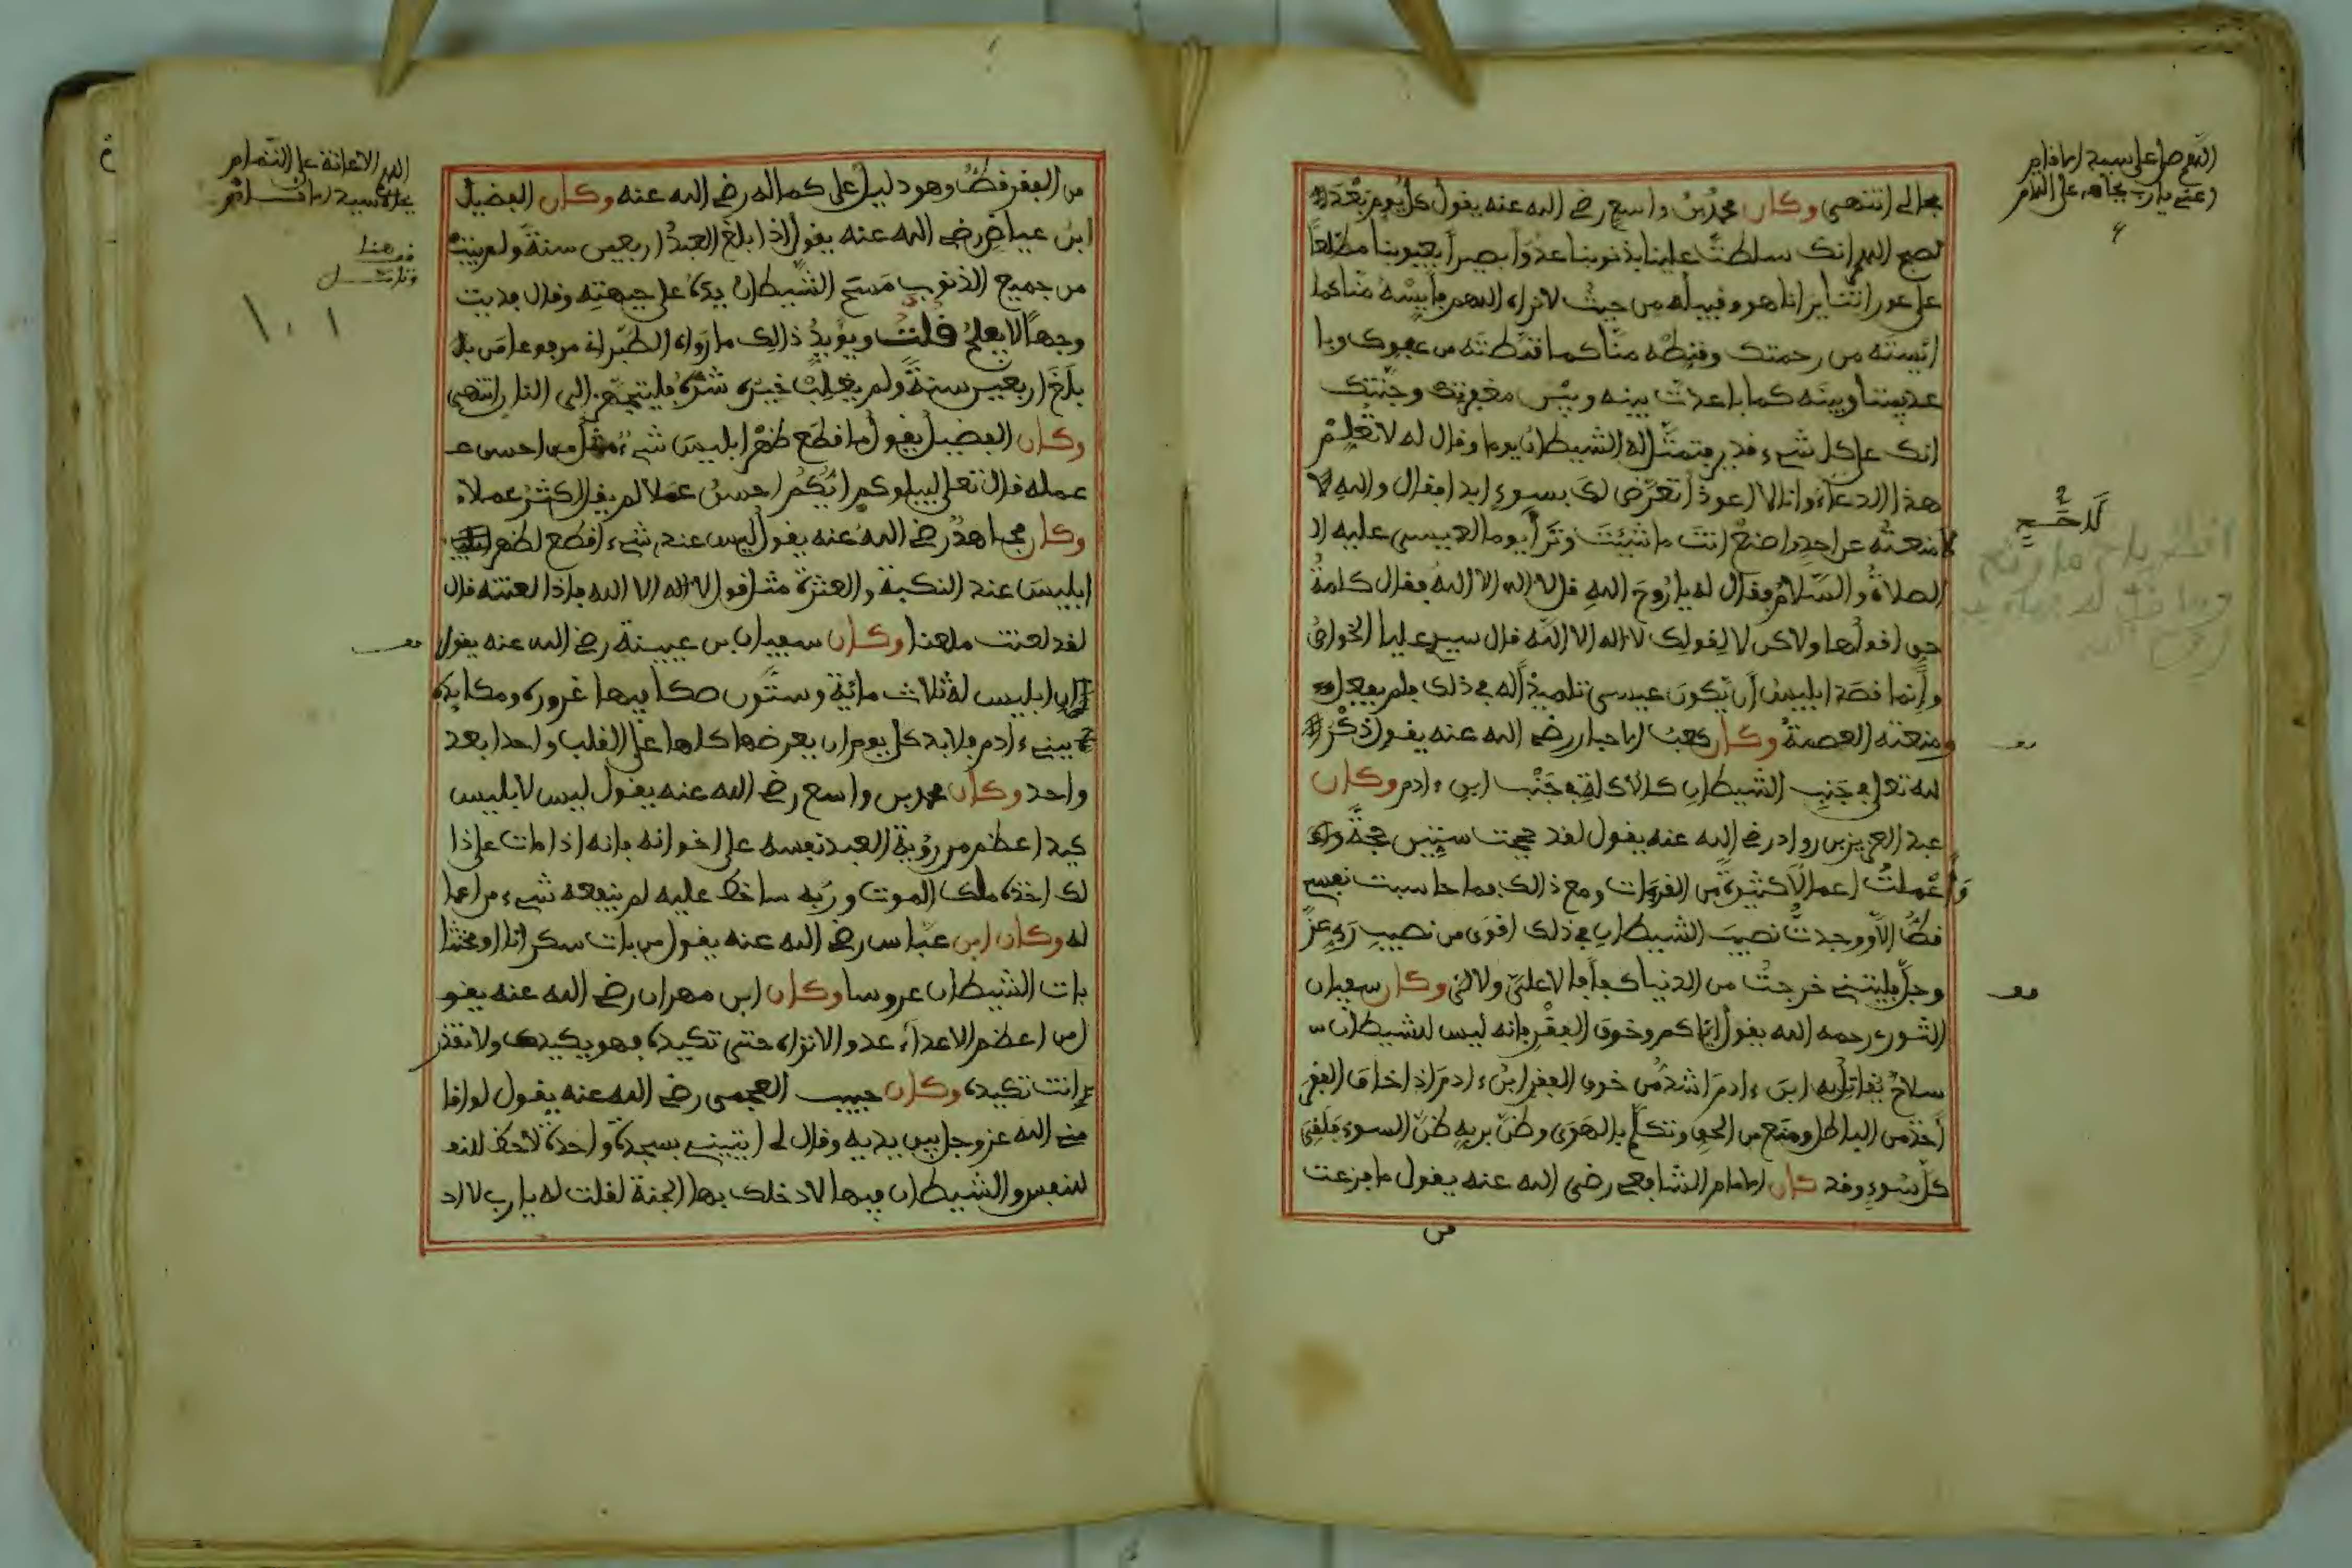 اللهم صل على سيدنا
مجالى انتهى وكان محمد بن واسع رضي الله عنه يقول كل يوم بعد
الصبح اللهم انك سلطت علينا بذنوبنا عدوا بصيرا بعيوبنا مطلعا
على عوراتنا يرانا هو وقبيله من حيث لا نراه اللهم فأيسه منا كما
ائيسته من رحمتك وقنطه منا كما قنطته من عفوك وبا
عد بيننا وبينه كما باعدت بينه وبين مغفرتك وجنتك
انك على كل شيء قدير فتمثل له الشيطان يوما وقال له لا تعلم
هذا الدعاء وانا لا اعود اتعرض لك بسوء ابدا فقال والله لا
منعته عن احد واصنع انت ما شئت وترأى يوما لعيسى عليه
الصلاة والسلام وقال له يا روح الله قل لا اله الا الله فقال كلمة
حق اقولها ولاكن لا لقولك لا اله الا الله قال سيدي علي الخواص
وانما قصد ابليس أن يكون عيسى تلميذا له في ذلك فلم يفعل
ومنعته العصمة وكان كعب الاحبار رضي الله عنه يقول ذكر
الله تعالى في جنب الشيطان كالاكلة في جنب ابن ءادم وكان
عبد العزيز بن رواد رضي الله عنه يقول لقد حججت ستين حجة
وعملت اعمالا كثيرة من القربات ومع ذالك فما حاسبت نفسي
قط الا ووجدت نصيب الشيطان في ذلك اقوى من نصيب ربي عز
وجل فليتني خرجت من الدنيا كفافا لا علي ولا لي وكان سفيان
الثوري رحمه الله يقول اياكم وخوف الفقر فانه ليس للشيطان
سلاح يقاتل به ابن ءادم اشد من خوف الفقر ابن ءادم اذا خاف الفقر
أخذ من الباطل ومنع من الحق وتكلم بالهوى وظن بربه ظن السوء فلقي
كل سوء وقد كان الامام الشافعي رضي الله عنه يقول ما فزعت
من
من الفقر قط وهو دليل على كماله رضي الله عنه وكان الفضيل
ابن عياض رضي الله عنه يقول اذا بلغ العبد اربعين سنة ولم يتب
من جميع الذنوب مسح الشيطان بيده على جبهته وقال فديت
وجها لا يفلح قلت ويؤيد ذالك ما رواه الطبراني مرفوعا من
بلغ اربعين سنة ولم يغلب خيره شره فليتجهز الى النار انتهى
وكان الفضيل يقول ما قطع ظهر ابليس شيء من احسن
عمله قال تعالى ليبلوكم ايكم احسن عملا لم يقل اكثر عملا
وكان مجاهد رضي الله عنه يقول ليس عند شيء اقطع لظهر
ابليس عند النكبة والعثرة مثل قول لا اله الا الله فإذا لعنته قال
لقد لعنت ملعنا وكان سفيان بن عيينة رضي الله عنه يقول
ان ابليس له ثلاث مائة وستون صكا فيها غروره ومكايده
بني ءادم فلا بد كل يوم ان يعرضها كلها على القلب واحدا بعد
واحد وكان محمد بن واسع رضي الله عنه يقول ليس لابليس
كيد اعظم من رؤية العبد نفسه على اخوانه فانه اذا مات على ذا
لك اخذه ملك الموت وربه ساخط عليه لم ينفعه شيء من اعما
له وكان ابن عباس رضي الله عنه يقول من بات سكرانا او مخنثا
بات الشيطان عروسا وكان ابن مهران رضي الله عنه يقو
ل من اعظم الاعداء عدو لا تراه حتى تكيده فهو يكيدك ولا تقدر
انت تكيده وكان حبيب العجمي رضي الله عنه يقول لو اقا
مني الله عز وجل بين يديه وقال لي ايتيني بسجدة واحدة لا حظ
للنفس والشيطان فيها لادخلك بها الجنة لقلت له يا رب لا